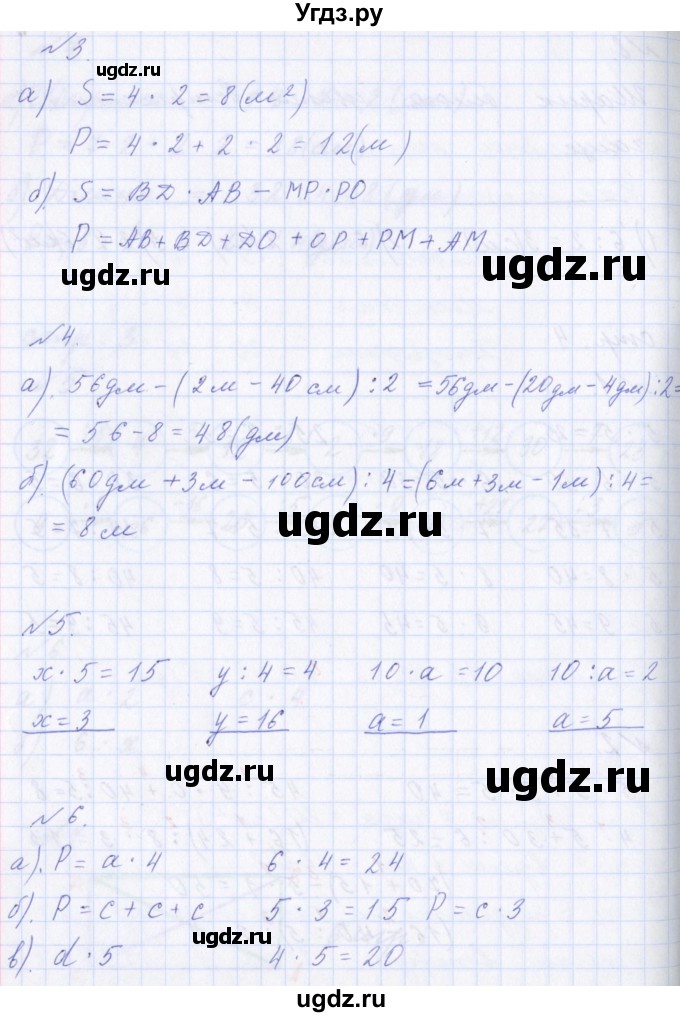 Угдз.ру
№3.
ugdz.ru
а) S = 4 · 2 = 8 (м²)
P = 4 · 2 + 2 · 2 = 12 (м)
б). S = BD · AB − MP · PO
P = AB + BD + DO + OP + PM + AM
ugdz.ru
ugdz.ru
№4.
а). 56дм − (2м − 40см) : 2 = 56дм − (20дм − 4дм) : 2 =
= 56 − 8 = 48 (дм)
ugdz.ru
б). (60дм + 3м − 100см) : 4 = (6м + 3м − 1м) : 4 =
= 8м
ugdz.ru
№5.
x · 5 = 15 y : 4 = 4 10 · a = 10 10 : a = 2
x = 3 y = 16 a = 1 a = 5
ugdz.ru
ugdz.ru
№6.
а). P = a · 4 6 · 4 = 24
б). P = c + c + c 5 · 3 = 15 P = c · 3
ugdz.ru
в). d · 5 4 · 5 = 20
ugdz.ru